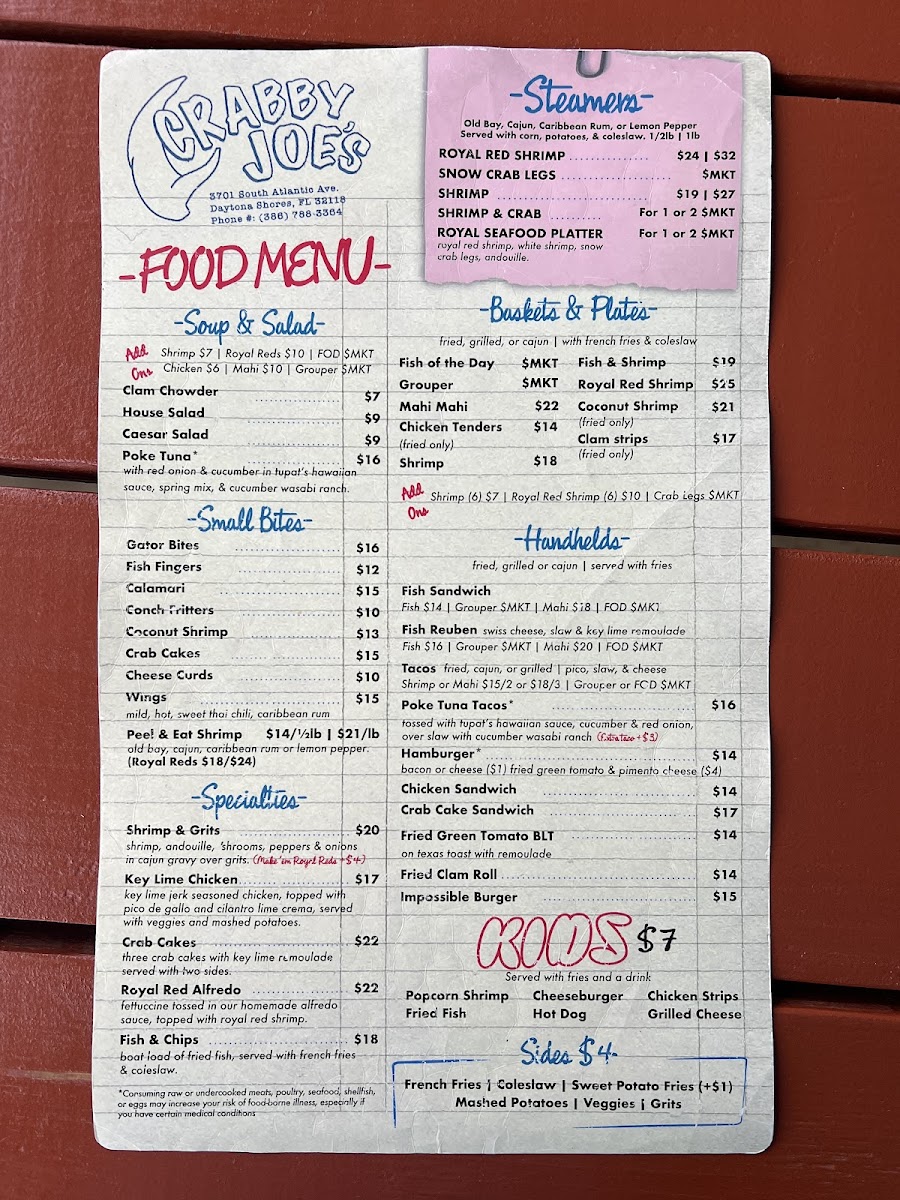 CRABBY
JOE'S
3701 South Atlantic Ave.
Daytona Shores, FL 32118
Phone #: (386) 788-3364
-FOOD MENU-
-Soup & Salad-
Add Ons
Shrimp $7 | Royal Reds $10 | FOD $MKT
Chicken $6 | Mahi $10 | Grouper $MKT
Clam Chowder $7
House Salad $9
Caesar Salad $9
Poke Tuna* $16
with red onion & cucumber in tupat's hawaiian
sauce, spring mix, & cucumber wasabi ranch.
-Small Bites-
Gator Bites $16
Fish Fingers $12
Calamari $15
Conch Fritters $10
Coconut Shrimp $13
Crab Cakes $15
Cheese Curds $10
Wings $15
mild, hot, sweet thai chili, caribbean rum
Peel & Eat Shrimp $14/½lb | $21/lb
old bay, cajun, caribbean rum or lemon pepper.
(Royal Reds $18/$24)
-Specialties-
Shrimp & Grits $20
shrimp, andouille, 'shrooms, peppers & onions
in cajun gravy over grits. (Make 'em Royal Reds +$4)
Key Lime Chicken $17
key lime jerk seasoned chicken, topped with
pico de gallo and cilantro lime crema, served
with veggies and mashed potatoes.
Crab Cakes $22
three crab cakes with key lime remoulade
served with two sides.
Royal Red Alfredo $22
fettuccine tossed in our homemade alfredo
sauce, topped with royal red shrimp.
Fish & Chips $18
boat load of fried fish, served with french fries
& coleslaw.
*Consuming raw or undercooked meats, poultry, seafood, shellfish,
or eggs may increase your risk of food-borne illness, especially if
you have certain medical conditions
-Steamers-
Old Bay, Cajun, Caribbean Rum, or Lemon Pepper
Served with corn, potatoes, & coleslaw. 1/2lb | 1lb
ROYAL RED SHRIMP $24 | $32
SNOW CRAB LEGS $MKT
SHRIMP $19 | $27
SHRIMP & CRAB For 1 or 2 $MKT
ROYAL SEAFOOD PLATTER For 1 or 2 $MKT
royal red shrimp, white shrimp, snow
crab legs, andouille.
-Baskets & Plates-
fried, grilled, or cajun | with french fries & coleslaw
Fish of the Day $MKT
Grouper $MKT
Mahi Mahi $22
Chicken Tenders $14
(fried only)
Shrimp $18
Fish & Shrimp $19
Royal Red Shrimp $25
Coconut Shrimp $21
(fried only)
Clam strips $17
(fried only)
Add Ons
Shrimp (6) $7 | Royal Red Shrimp (6) $10 | Crab Legs $MKT
-Handhelds-
fried, grilled or cajun | served with fries
Fish Sandwich
Fish $14 | Grouper $MKT | Mahi $18 | FOD $MKT
Fish Reuben swiss cheese, slaw & key lime remoulade
Fish $16 | Grouper $MKT | Mahi $20 | FOD $MKT
Tacos fried, cajun, or grilled | pico, slaw, & cheese
Shrimp or Mahi $15/2 or $18/3 | Grouper or FOD $MKT
Poke Tuna Tacos* $16
tossed with tupat's hawaiian sauce, cucumber & red onion,
over slaw with cucumber wasabi ranch (Extra taco +$3)
Hamburger* $14
bacon or cheese ($1) fried green tomato & pimento cheese ($4)
Chicken Sandwich $14
Crab Cake Sandwich $17
Fried Green Tomato BLT $14
on texas toast with remoulade
Fried Clam Roll $14
Impossible Burger $15
KIDS $7
Served with fries and a drink
Popcorn Shrimp Cheeseburger Chicken Strips
Fried Fish Hot Dog Grilled Cheese
Sides $4-
French Fries | Coleslaw | Sweet Potato Fries (+$1)
Mashed Potatoes | Veggies | Grits